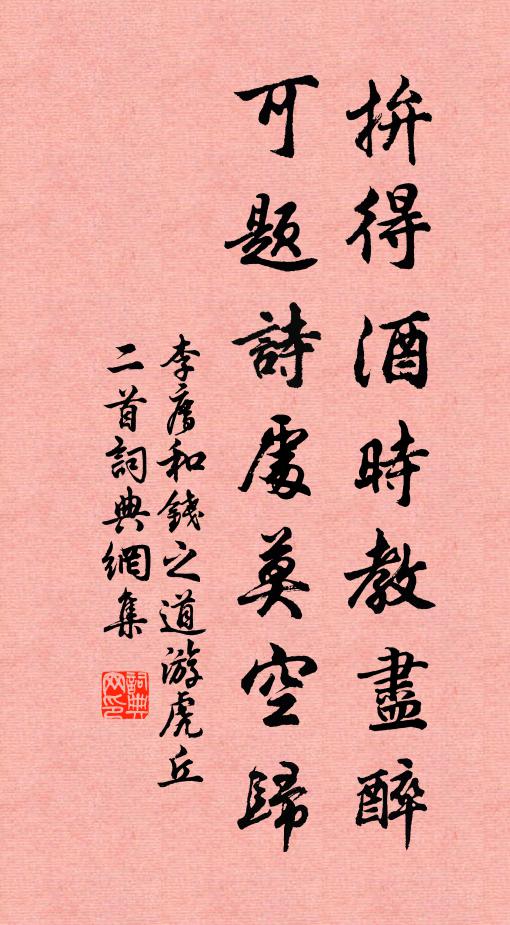 拼得酒時教盡醉
可題詩處莫空歸
李和錢之道游虎丘
二首詞典網集
詞典网印